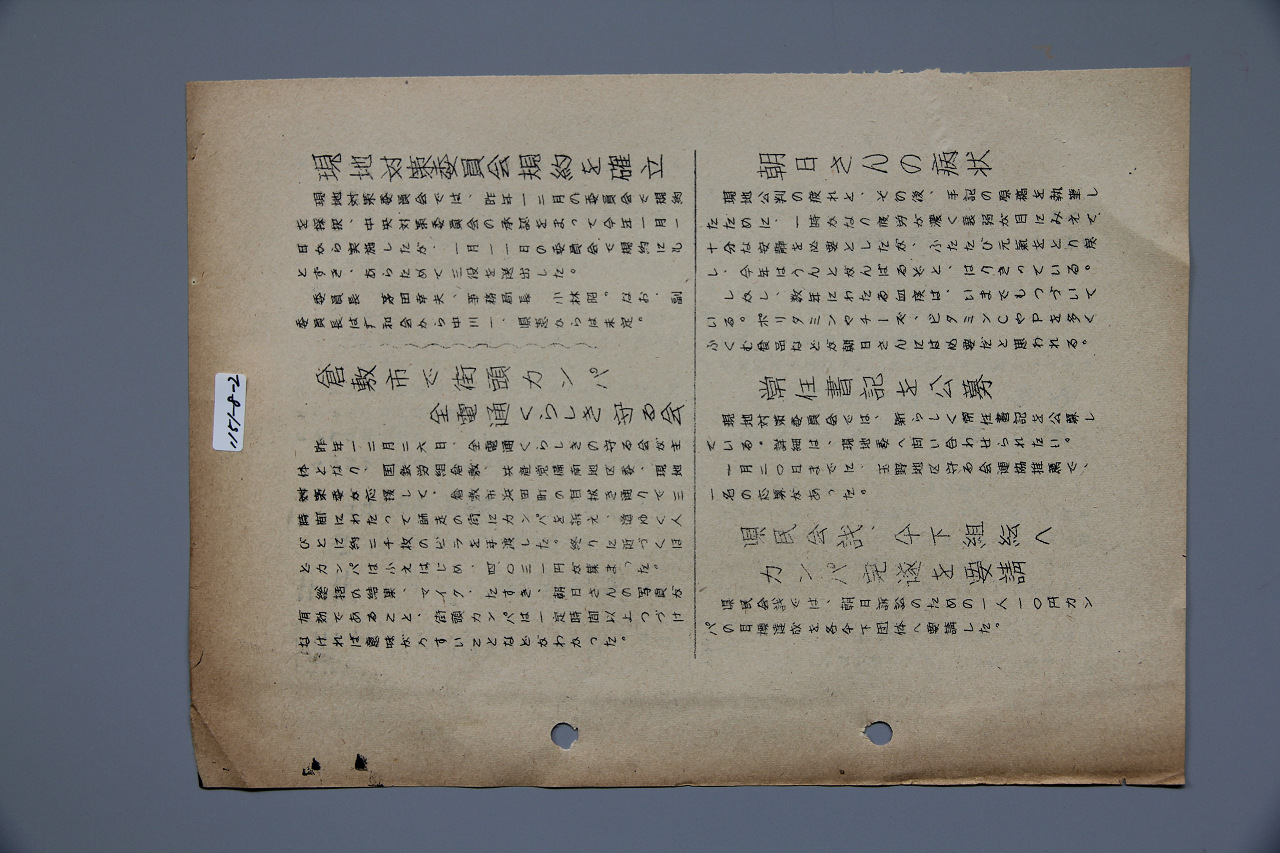 現地対策委員会規約を確立
現地対策委員会では、昨年一二月の委員会で規約
を採択、中央対策委員会の承認をまって今年一月一
日から実施したが、一月一一日の委員会で規約にも
とずき、あらためて三役を選出した。
委員長 茅田幸夫、事務局長 小林昭。なお、副
委員長は平和会から中川一、県患からは未定。
倉敷市で街頭カンパ
全電通くらしき守る会
昨年一二月二六日、全電通くらしきの守る会が主
体となり、国鉄労組倉敷、共産党備南地区委、現地
対策委が応援して、倉敷市浜田町の目抜き通りで三
時間にわたって師走の街にカンパを訴え、道ゆく人
びとに約二千枚のビラを手渡した。終りに近づくほ
とカンパは小えはじめ、四〇三一円が集まった。
総括の結果、マイク、たすき、朝日さんの写真が
有効であること、街頭カンパは一定時間以上つづけ
なければ意味がうすいことなどがわかった。
朝日さんの病状
現地公判の疲れと、その後、手記の原稿を執筆し
たために、一時かなり疲労が濃く衰弱が目にみえて、
十分な安静を必要としたが、ふたたび元気をとり戻
し、今年はうんとがんばるぞと、はりきっている。
しかし、数年にわたる血痰は、いまでもつづいて
いる。ポリタミンやチーズ、ビタミンCやPを多く
ふくむ食品などが朝日さんには必要だと思われる。
常任書記を公募
現地対策委員会では、新らしく常任書記を公募し
ている。詳細は、現地委へ問い合わせられたい。
一月二〇日までに、玉野地区守る会連協推薦で、
一名の応募があった。
県民会議、傘下組織へ
カンパ完遂を要請
県民会議では、朝日訴訟のための一人一〇円カン
パの目標達成を各傘下団体へ要請した。
1151-8-2